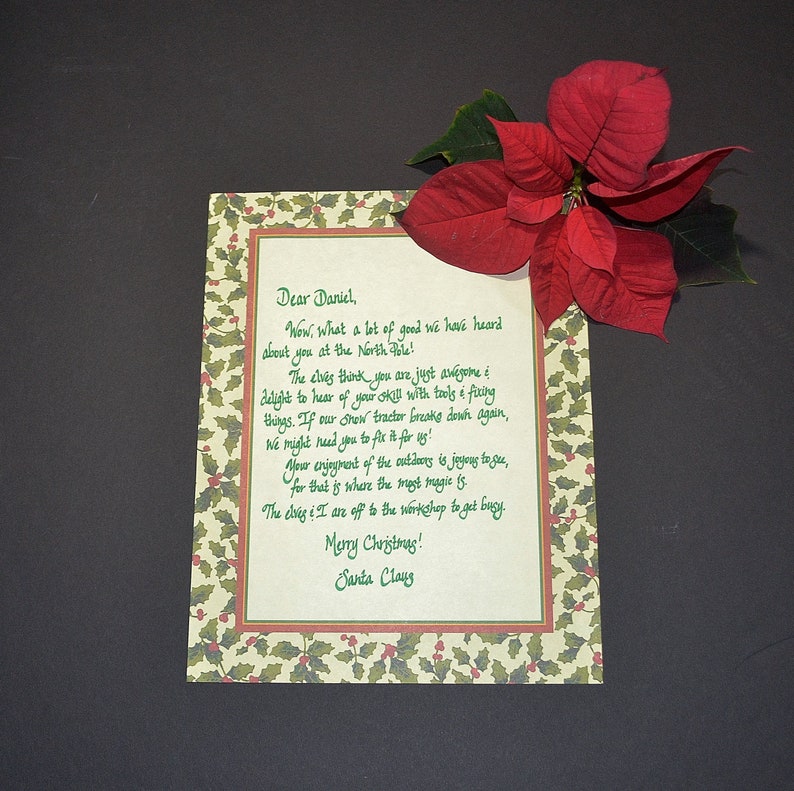 Dear Daniel,
Wow, what a lot of good we have heard
about you at the North Pole!
The elves think you are just awesome &
delight to hear of your skill with tools & fixing
things. If our snow tractor breaks down again,
we might need you to fix it for us!
Your enjoyment of the outdoors is joyous to see,
for that is where the most magic is.
The elves & I are off to the workshop to get busy.
Merry Christmas!
-Santa Claus